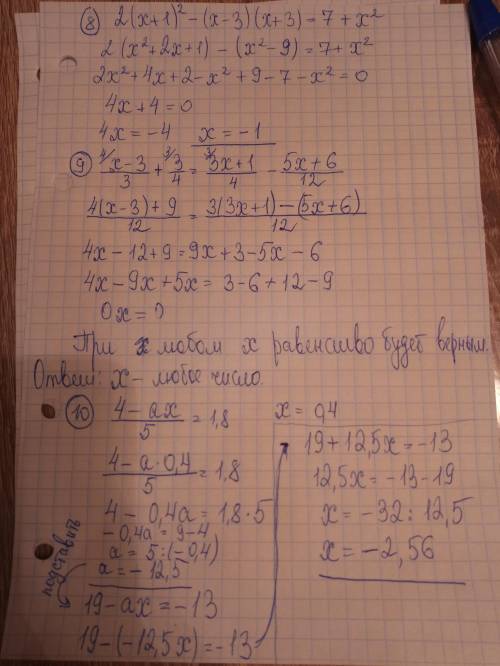 ⑧ 2(x+1)² - (x-3)(x+3) = 7 + x²
2(x²+2x+1) - (x²-9) = 7 + x²
2x²+4x+2-x²+9-7-x²=0
4x+4=0
4x=-4 x=-1
⑨ 4/ x-3/3 + 3/ 3/4 = 3/ 3x+1/4 - 5x+6/12
4(x-3)+9/12 = 3(3x+1)-(5x+6)/12
4x-12+9=9x+3-5x-6
4x-9x+5x=3-6+12-9
0x=0
При любом x равенство будет верным.
Ответ: x - любое число.
⑩ 4-ax/5 = 1,8 x = 0,4
4-a·0,4/5 = 1,8
4-0,4a=1,8·5
-0,4a=9-4
a=5:(-0,4)
a=-12,5
подставить
19-ax=-13
19-(-12,5x)=-13
19+12,5x=-13
12,5x=-13-19
x=-32:12,5
x=-2,56